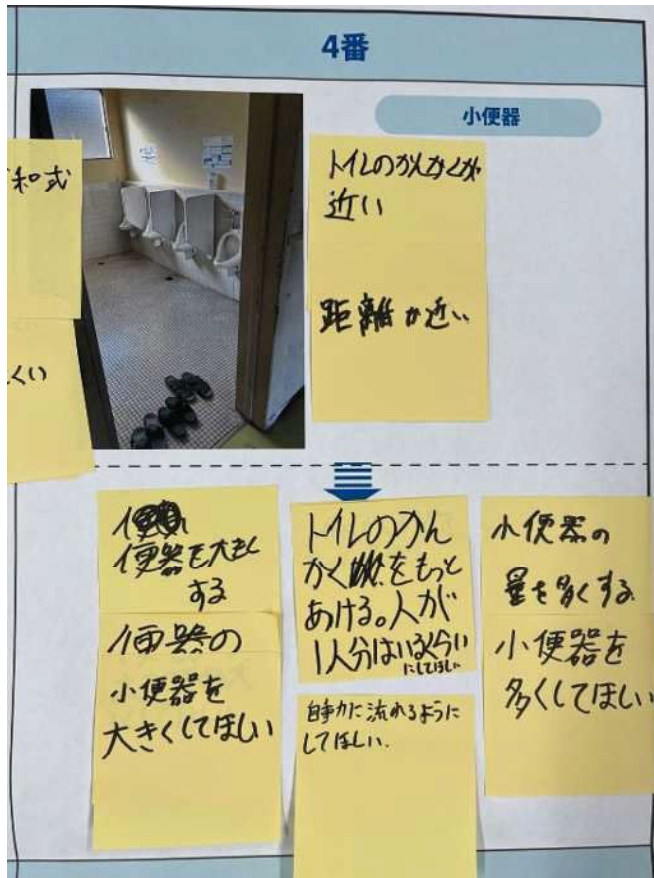 4番
小便器
和式
くい
トイレのかんかくが
近い
距離が近い
便器を大きく
する
便器の
小便器を
大きくしてほしい
トイレのかん
かくをもっと
あける。人が
1人分はいるくらい
にしてほしい
自動に流れるように
してほしい.
小便器の
量を多くする
小便器を
多くしてほしい